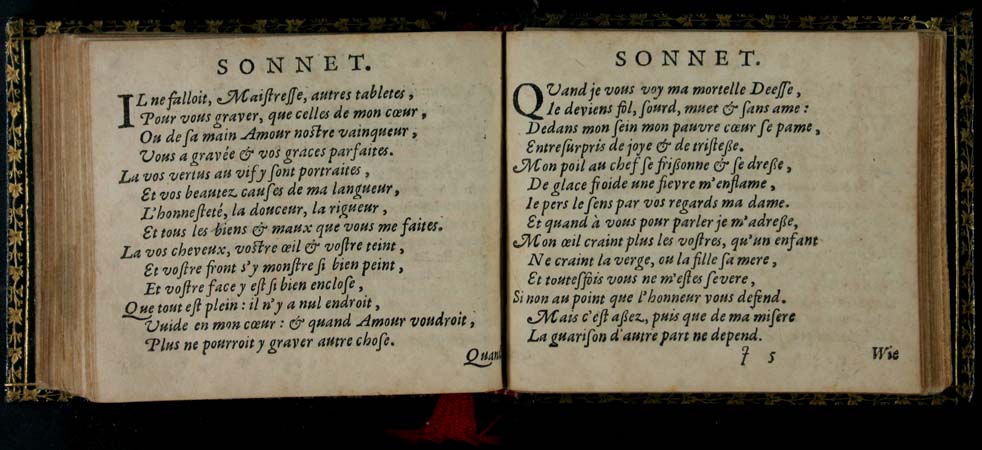 SONNET.
IL ne falloit, Maistresse, autres tabletes,
Pour vous graver, que celles de mon cœur,
Ou de sa main Amour nostre vainqueur,
Vous a gravée & vos graces parfaites.
La vos vertus au vif y sont portraites,
Et vos beautez causes de ma langueur,
L'honnesteté, la douceur, la rigueur,
Et tous les biens & maux que vous me faites.
La vos cheveux, vostre œil & vostre teint,
Et vostre front s'y monstre si bien peint,
Et vostre face y est si bien enclose,
Que tout est plein: il n'y a nul endroit,
Vuide en mon cœur: & quand Amour voudroit,
Plus ne pourroit y graver autre chose.
Quand
SONNET.
QVand je vous voy ma mortelle Deesse,
Ie deviens fol, sourd, muet & sans ame:
Dedans mon sein mon pauvre cœur se pame,
Entresurpris de joye & de tristeße.
Mon poil au chef se frißonne & se dreße,
De glace froide une fievre m'enflame,
Ie pers le sens par vos regards ma dame.
Et quand à vous pour parler je m'adreße,
Mon œil craint plus les vostres, qu'un enfant
Ne craint la verge, ou la fille sa mere,
Et toutesfois vous ne m'estes severe,
Si non au point que l'honneur vous defend.
Mais c'est aßez, puis que de ma misere
La guarison d'autre part ne depend.
5
Wie